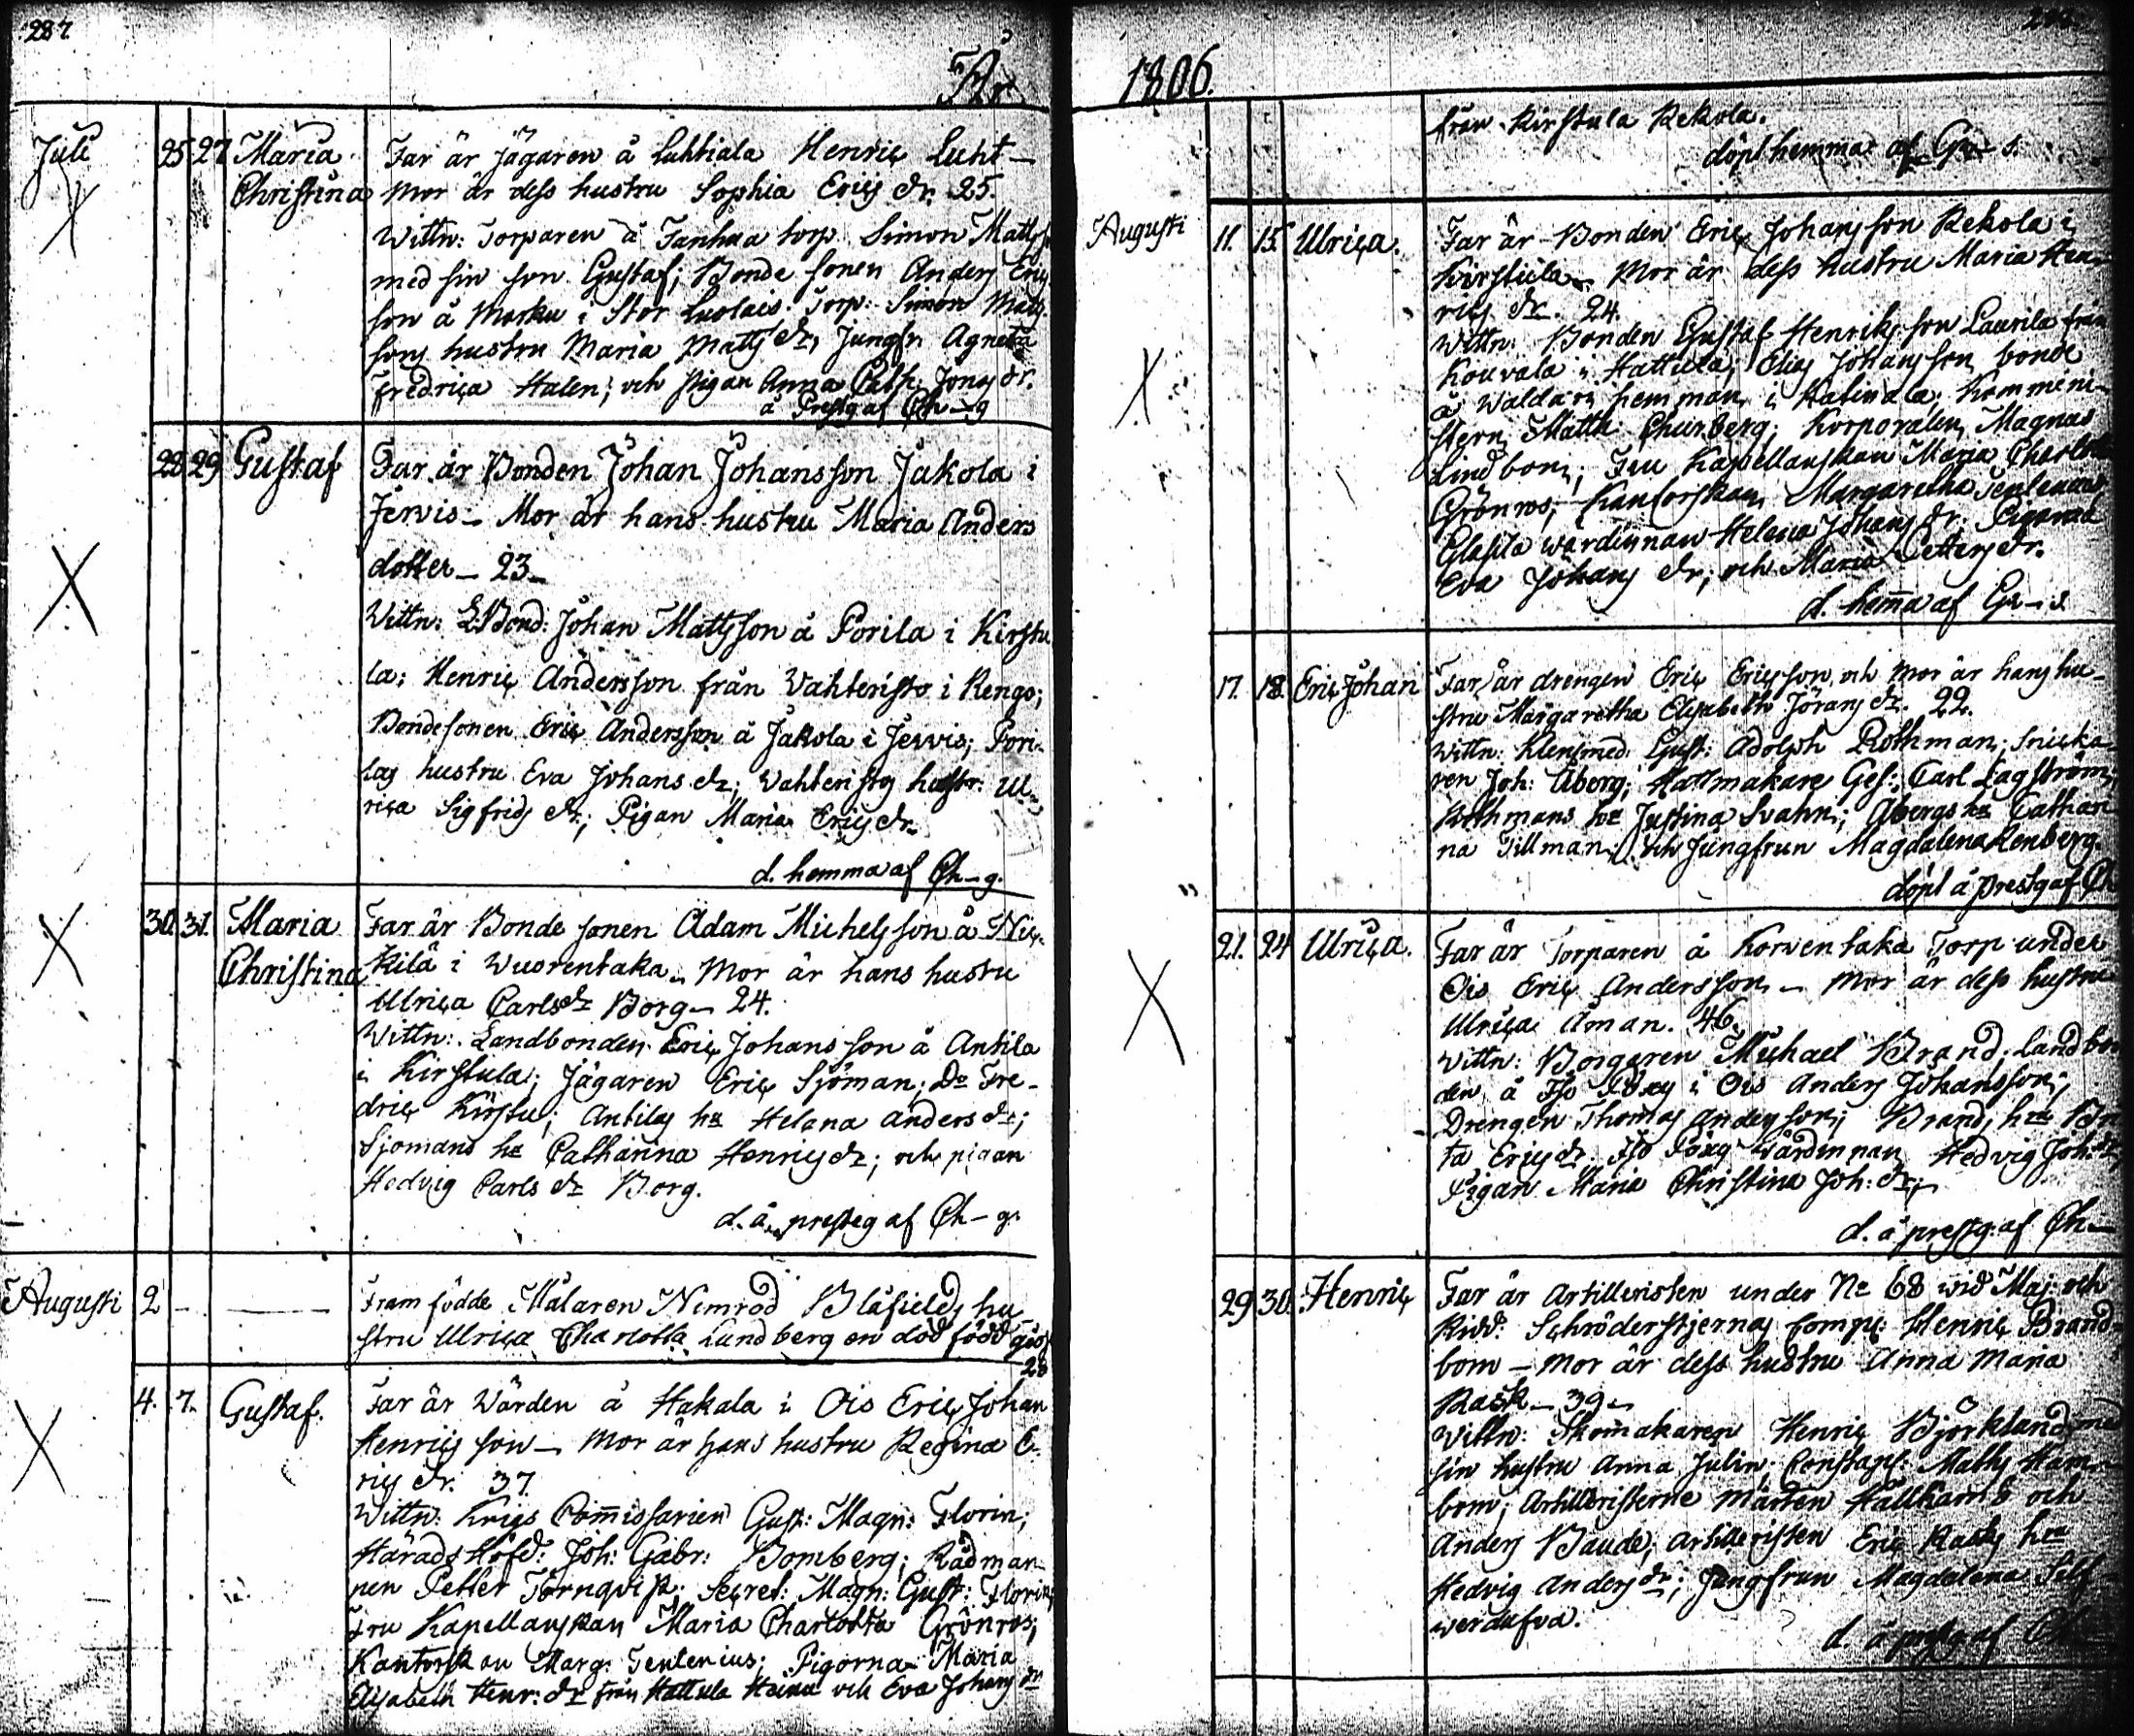 287.
År
Juli 25 27 Maria Far är Jägaren å Luhtiala Henric Luht-
Christina Mor är dess hustru Sophia Erics dr. 25.
Wittn: Torparen å Tanhua torp Simon Matts
med sin son Gustaf; Bonde sonen Anders Erics
son å Marku i Stor Luolais. Torp: Simon Matts
sons hustru Maria Matts dr, Jungfr Agneta
Fredrica Halen; och pigan Anna Cath: Jons dr.
å Prestg af Ch-g
28 29 Gustaf Far är Bonden Johan Johansson Jakola i
Jervis - Mor är hans hustru Maria Anders
dotter - 23 -
Wittn: LBond: Johan Mattsson å Porila i Kirstu
la; Henric Andersson från Vahteristo i Rengo;
Bondesonen Eric Andersson å Jakola i Jervis; Pori-
las hustru Eva Johans dr; Vahteristos hustr: Ul-
rica Sigfrids dr; Pigan Maria Erics dr.
d. hemma af Ch-g.
30. 31. Maria Far är Bonde sonen Adam Michelsson å Nic-
Christina kilä i Wuorentaka. Mor är hans hustru
Ulrica Carlsdr Borg - 24.
Wittn: Landbonden Eric Johansson å Antila
i Kirstula; Jägaren Eric Sjöman; Do Fre-
dric Kirstu; Antilas ha Helena Anders dr;
Sjömans ha Catharina Henrics dr; och pigan
Hedvig Carls dr Borg.
d. å presteg af Ch-g.
Augusti 2 - Framfödde Målaren Nemrod Blåfields hu
stru Ulrica Charlotta Lundberg en död född
28
4. 7. Gustaf. Far är Värden å Hakala i Ois Eric Johan
Henrics son - Mor är hans hustru Regina E-
rics dr. 37.
Wittn: Krigs Commissarien Gust: Magn: Florin;
Härads Höfd: Joh: Gabr: Bomberg; Rådman-
nen Petter Törnqvist; Secret: Magn: Gust: Florin;
Fru Kapellanskan Maria Charlotta Grönros;
Kantorskan Marg: Tenlenius; Pigorna Maria
Elisabeth Henr: dr från Hattula och Eva Johans dr
1806.
från Kirstula Rekola.
döpt hemma af G-s.
Augusti 11. 15. Ulrica. Far är Bonden Eric Johansson Rekola i
Kirstula. Mor är dess hustru Maria Hen-
rics dr. 24.
Wittn: Bonden Gustaf Henriksson Laurila från
Kouvala i Hattula; Elias Johansson bonde
å Waldari hemman i Katinala; Kommini-
stern Matth Churberg; Korporalen Magnus
Lindbom; Fru Kapellanskan Maria Charlotta
Grönros; Kantorskan Margaretha Tenlenius;
Elasila wärdinnan Helena Johans dr; Pigorna
Eva Johans dr; och Maria Petters dr.
d. hemma af Gr-s
17. 18. Eric Johan Far är drengen Eric Ericsson och Mor är hans hu-
stru Margaretha Elisabeth Jörans dr. 22.
Wittn: Klensmed: Gust: Adolph Rothman; Snicka-
ren Joh: Åberg; Hattmakare Ges: Carl Lagström;
Rothmans ha Justina Svahn; Åbergs ha Cathari
na Tillman; och Jungfrun Magdalena Renberg.
döpt å prestg af Ch
21. 24 Ulrica. Far är Torparen å Korventaka Torp under
Ois Eric Andersson - Mor är dess hustru
Ulrica Åman. 46.
Wittn: Borgaren Michael Brand; Landbon
den å Iso i Ois Anders Johansson;
Drengen Thomas Andersson; Brands hra Bri
ta Erics dr. Iso wärdinnan Hedvig Joh: dr;
Pigan Maria Christina Joh: dr;
d. å prestg: af Ch-
29 30. Henric Far är Artilleristen under No 68 wid Maj: och
Ridd: Schröderstjernas Comp: Henric Brand-
bom - Mor är dess hustru Anna Maria
Rask - 39 -
Wittn: Skomakaren Henric Björklund med
sin hustru Anna Julin; Constap: Matts Ham-
bom; Artilleristerne Mårten Hällkams och
Anders Baude; Artilleristen Eric Rasks hra
Hedvig Anders dr; Jungfrun Magdalena Self
werdufva.
d. å prestg af Ch